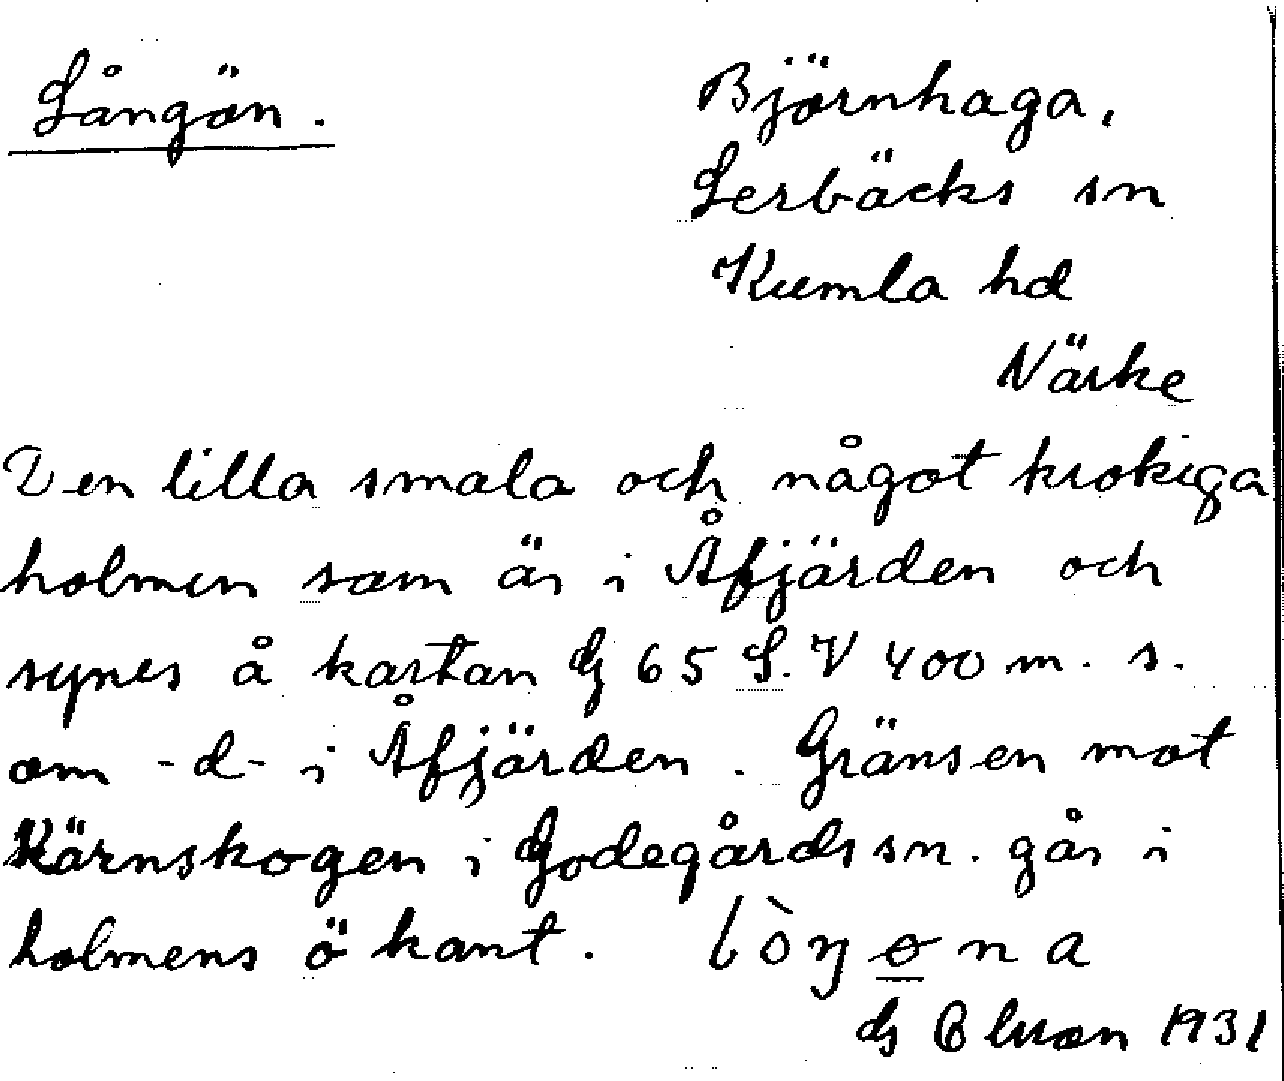 Långön.
Björnhaga,
Lerbäcks sn
Kumla hd
Närke
Den lilla smala och något krokiga
holmen som är i Åfjärden och
synes å kartan G 65 S. V 400 m. s.
om -d- i Åfjärden. Gränsen mot
Kärnskogen i Godegårds sn. går i
holmens ö kant. lòŋɵna
1931